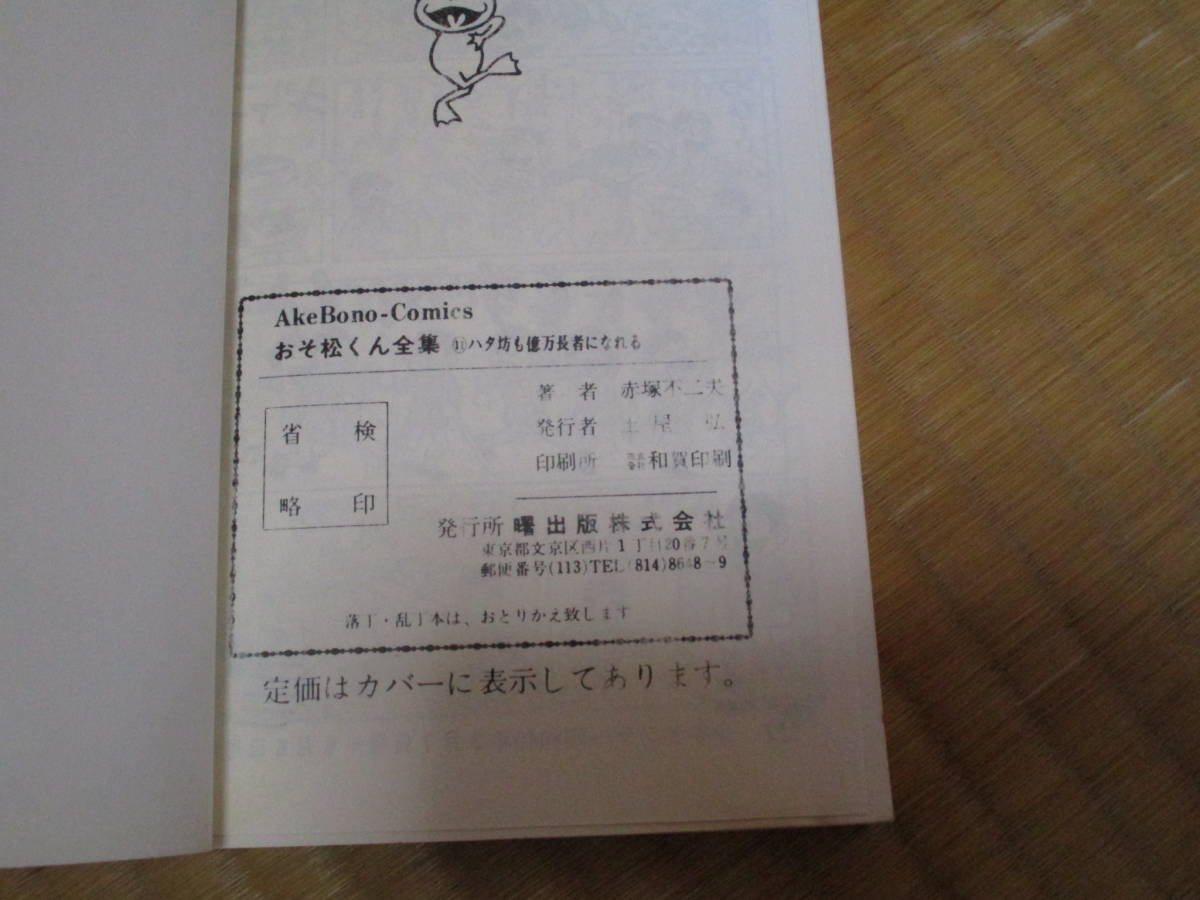 AkeBono-Comics
おそ松くん全集 ⑪ハタ坊も億万長者になれる
著者 赤塚不二夫
発行者 土屋 弘
印刷所 株式会社 和賀印刷
検印
省略
発行所 曙出版株式会社
東京都文京区西片1丁目20番7号
郵便番号(113)TEL(814)8648~9
落丁・乱丁本は、おとりかえ致します
定価はカバーに表示してあります。